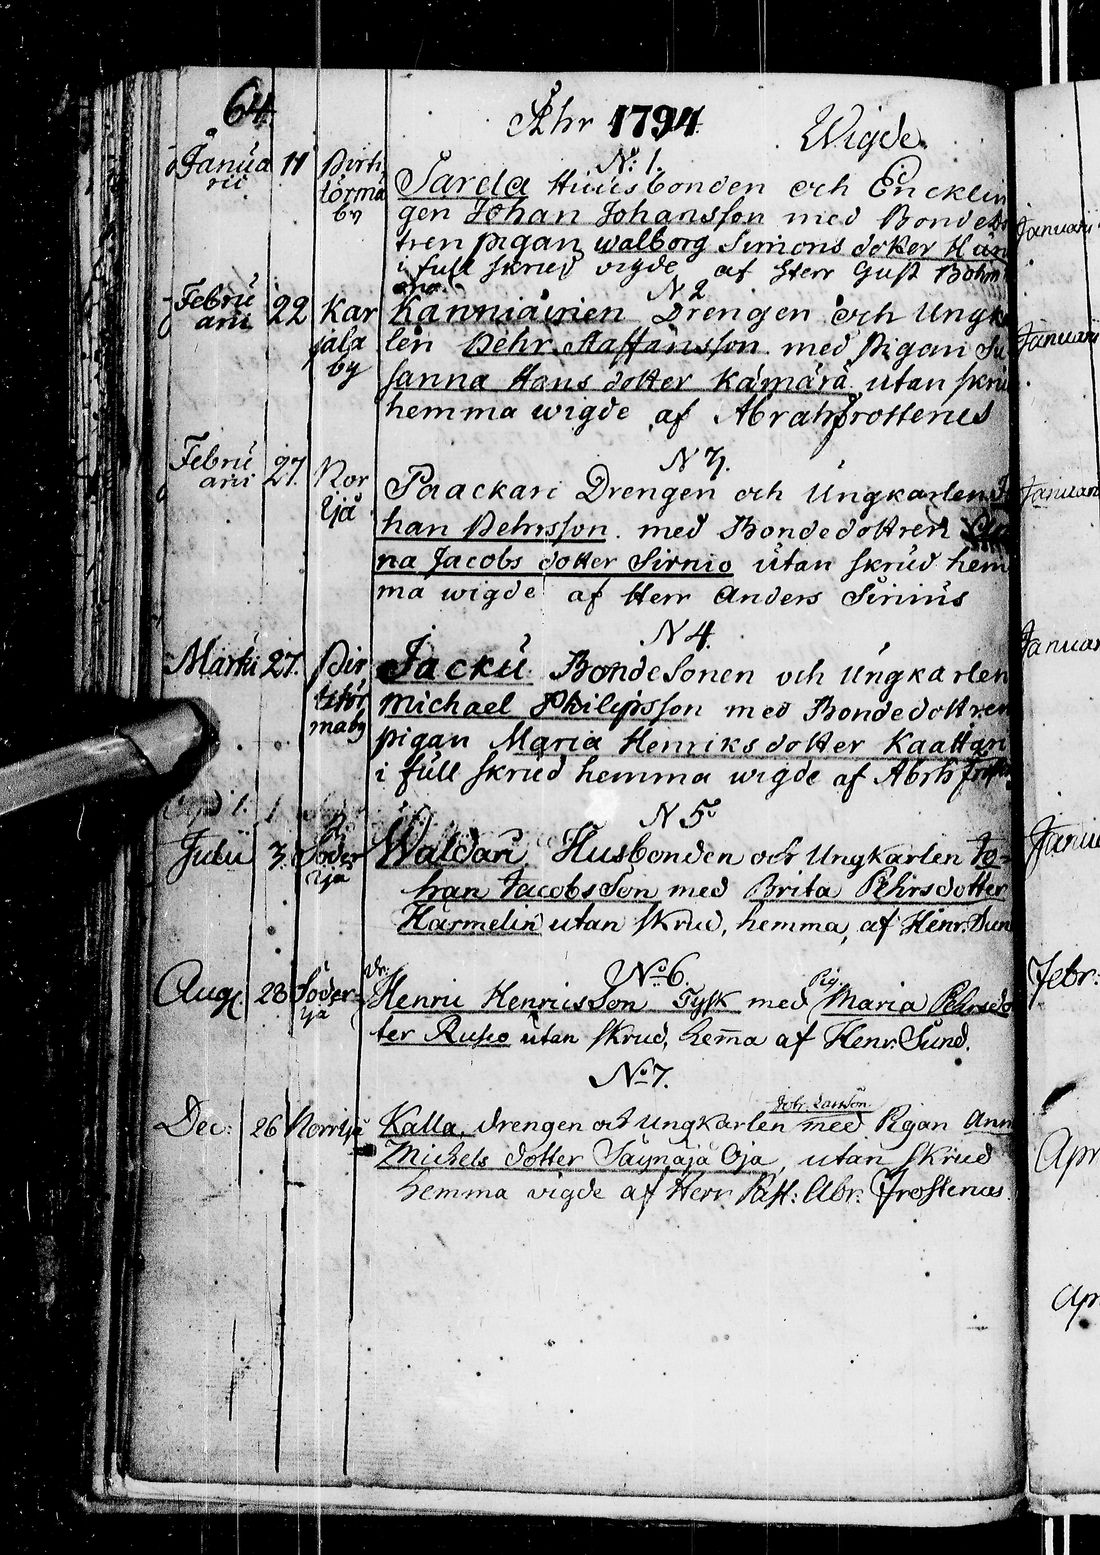 64
Åhr 1794 Wigde
N: 1.
Januarii 11 Pirttikormaby
Sarela Huusbonden och Encklin
gen Johan Johansson med Bonde
tren pigan walborg Simons doter
i full skrud vigde af Herr Gust
N 2
Februarii 22 Karjalaby
Kanniainen Drengen och Ungka
len Pehr Staffansson med Pigan Su
sanna Hans dotter Kämärä utan skru
hemma wigde af Abrah frostenus
N 3.
Februarii 27. Nor
Paackari Drengen och Ungkarlen Jo
han Pehrsson med Bondedottren
na Jacobs dotter Sirnio utan skrud hem
ma wigde af Herr Anders Sirnius
N 4.
Martii 27.
Jacku BondeSonen och Ungkarlen
Michael Philipsson med Bondedottren
pigan Maria Henriks dotter Kaattari
i full skrud hemma wigde af Abrh
N 5
Julii 3. Söder
Waldari Husbonden och Ungkarlen Jo-
han JacobsSon med Brita Pehrsdotter
Härmelin utan skrud, hemma, af Henr. Sun
No 6.
Aug. 28 Söder-
dr: Henric HenricsSon Tysk med Pig. Maria Pehrsdo
ter Rusco utan skrud, hema af Henr. Sund.
No 7.
Dec: 26
Kalla, drengen och Ungkarlen med Pigan Ann
Michels dotter Säynäjä Oja, utan skrud
hemma vigde af Herr Past: Abr. Frostenus.
Januarii
Januarii
Januari
Januar
Janua
Febr:
Apr
Apr